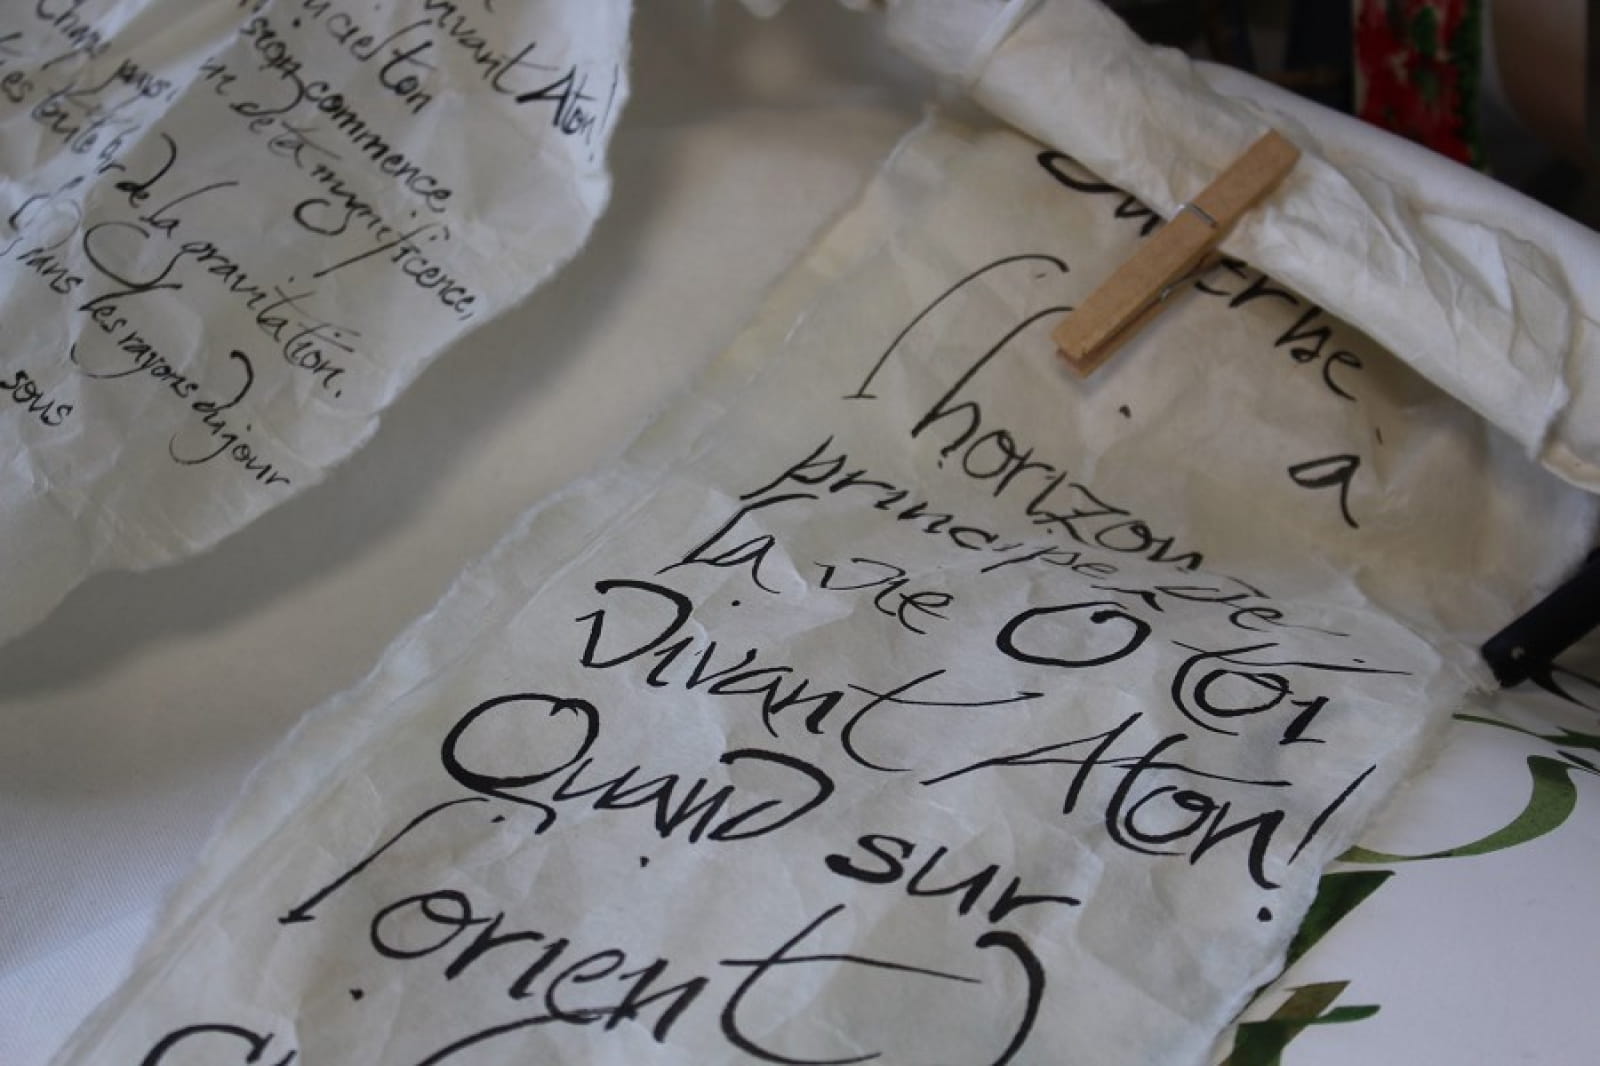 vivant Aton!
ciel ton
sion commence,
de ta magnificence,
pays,
de la gravitation.
dans les rayons du jour
sous
à
l'horizon
principe de
la vie Ô toi
Divant Aton!
Quand sur
l'orient